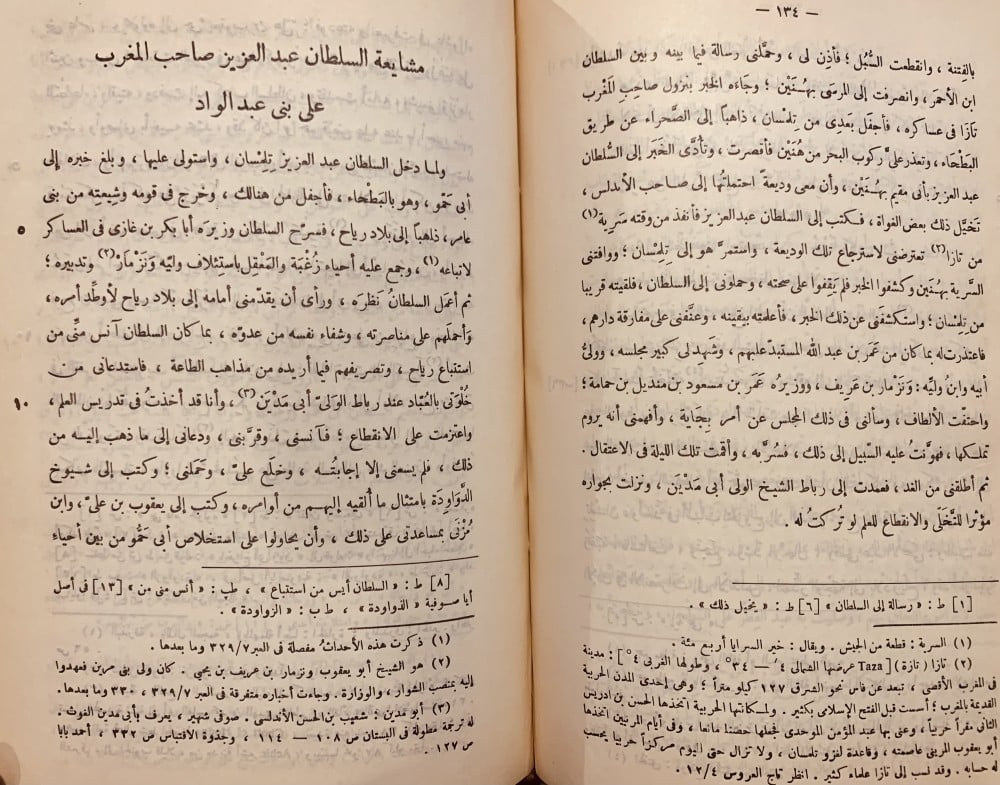 — ١٣٤ —
بالفتنة ، وانقطعت السُّبُل ؛ فأذن لى ، وحمَّلنى رسالة فيما بينه وبين السلطان
ابن الأحمَر، وانصرفت إلى المرسَى بهُنَيْن ؛ وجاءه الخبَر بنزول صاحِبِ المَغْرب
تازَا فى عساكره، فأجفَل بَعْدِى من تِلِمْسان ، ذاهباً إلى الصَّحراء عن طريق
البَطْحَاء، وتعذر علىَّ ركوب البحر من هُنَيْن فأقصرت، وتأدَّى الخَبَر إلى السُّلطان
عبد العزيز بأنى مقيم بهُنَيْن، وأن معى وديعةً احتملتُها إلى صاحب الأندلس ،
تَخيَّل ذلك بعض الغواة، فكتب إلى السلطان عبدالعزيز فأنفذ من وقته سَرِية(١)
من تازا(٢) تعترضنى لاسترجاع تلك الوديعة ، واستمرَّ هو إلى تِلِمْسان ؛ ووافتنى
السَّرية بهُنَين وكشفوا الخبر فلم يَقِفوا على صحته ، وحملونى إلى السلطان ، فلقيته قريبا
من تِلِمْسان ؛ واستكشفنى عن ذلك الخبر، فأعلمته بيقينه ، وعنَّفنى على مفارقة دارهم ،
فاعتذرت له بما كان من عُمَر بن عبد الله المستبِدّ عليهم ، وشَهِد لى كبير مجلسه ، ووَلىُّ
أبيه وابنُ وليِّه: وَنْزمار بن عَريف ، ووزيرُه عُمَر بن مسعود بن منديل بن حمامة ؛
واحتفَّت الألطاف ، وسألنى فى ذلك المجلس عن أمر بِجَاية ، وأفهمنى أنه يروم
تملُّكها، فهوَّنتُ عليه السَّبيل إلى ذلك ، فسُرَّ به ، وأقمت تلك الليلة فى الاعتقال .
ثم أطلقنى من الغد ، فعمدت إلى رباط الشيخ الولى أبى مَدْيَن ، ونزلت بجواره
مؤثرا للتَّخلِّى والانقطاع للعلم لو تُركتُ له .
[١] ط : « رسالة إلى السلطان » [٦] ط : « يخيل ذلك » .
(١) السرية : قطعة من الجيش . ويقال : خير السرايا أربع مئة .
(٢) تازا ( تازة ) [ Taza عرضها الشمالى ٤′ — ٣٤° ، وطولها الغربى ٤° ] : مدينة
فى المغرب الأقصى ، تبعد عن فاس نحو الشرق ١٢٧ كيلو متراً ؛ وهى إحدى المدن الحربية
القديمة بالمغرب ؛ أسست قبل الفتح الإسلامى بكثير . ولمكانتها الحربية اتخذها الحسن بن ادريس
الثانى مقراً حربياً، وعنى بها عبد المؤمن الموحدى فجعلها حصنا مانعا ، وفى أيام المرينيين اتخذها
أبو يعقوب المرينى عاصمته ، وقاعدة لغزو تلمسان ، ولا تزال حتى اليوم مركزاً حربيا يحسب
له حسابه . وقد نسب إلى تازا علماء كثير . انظر تاج العروس ١٢/٤ .
مشايعة السلطان عبد العزيز صاحب المغرب
على بنى عبد الواد
ولما دخل السلطان عبد العزيز تِلِمْسان ، واستولى عليها ، وبلغ خبره إلى
أبى حَمُّو ، وهو بالبَطْحاء ، فأجفل من هنالك ، وخرج فى قومه وشِيعته من بنى
عامر، ذاهباً إلى بلاد رياح، فسرَّح السلطان وزيرَه أبا بكر بن غازى فى العساكر ٥
لاتباعه(١) ، وجمع عليه أحياء زُغْبَة والمَعْقِل باستئلاف وليِّه وَنْزمَارْ(٢) وتدبيره ؛
ثم أعمَل السلطانُ نظرَه ، ورأى أن يقدِّمنى أمامه إلى بلاد رياح لأوطِّد أمرَه،
وأحملهم على مناصرته ، وشفاء نفسه من عدوّه ، بما كان السلطان آنس منِّى من
استتباع رياح ، وتصريفهم فيما أريده من مذاهب الطاعة ، فاستدعانى من
خُلْوتى بالعُبّاد عند رباط الولىّ أبى مَدْيَن(٣)، وأنا قد أخذتُ فى تدريس العلم ، ١٠
واعتزمت على الانقطاع ؛ فآنسنى ، وقرَّبنى ، ودعانى إلى ما ذهب إليــه من
ذلك ، فلم يسعنى إلا إجابتُــه ، وخلَع علىّ ، وحَمَلنى ؛ وكتب إلى شيــوخ
الدَّوَاودَة بامتثال ما ألقيه إليهــم من أوامره ، وكتب إلى يعقوب بن علىّ، وابن
مُزْنَى بمساعدتى على ذلك ، وأن يحاولوا على استخلاص أبى حَمُّو من بين أحياء
[٨] ط : « السلطان أيس من استتباع » ، طپ : « أنس منى من » [١٣] فى أصل
أيا صــوفية « الذواودة » ، ط ب : « الزواودة » .
(١) ذكرت هذه الأحداث مفصلة فى العبر ٣٢٩/٧ وما بعدها .
(٢) هو الشيخ أبو يعقوب ونزمار بن عريف بن يحيى . كان ولى بنى مرين فعهدوا
إليه بمنصب الشوار ، والوزارة . وجاءت أخباره متفرقة فى العبر ٣٢٩/٧ ، ٣٣٠ وما بعدها.
(٣) أبو مدين : شعيب بن الحسن الأندلسى . صوفى شهير ، يعرف بأبى مدين الغوث .
له ترجمة مطولة فى البستان ص ١٠٨ — ١١٤ ، وجذوة الاقتباس ص ٣٣٢ ، أحمد بابا
ص ١٢٧ .